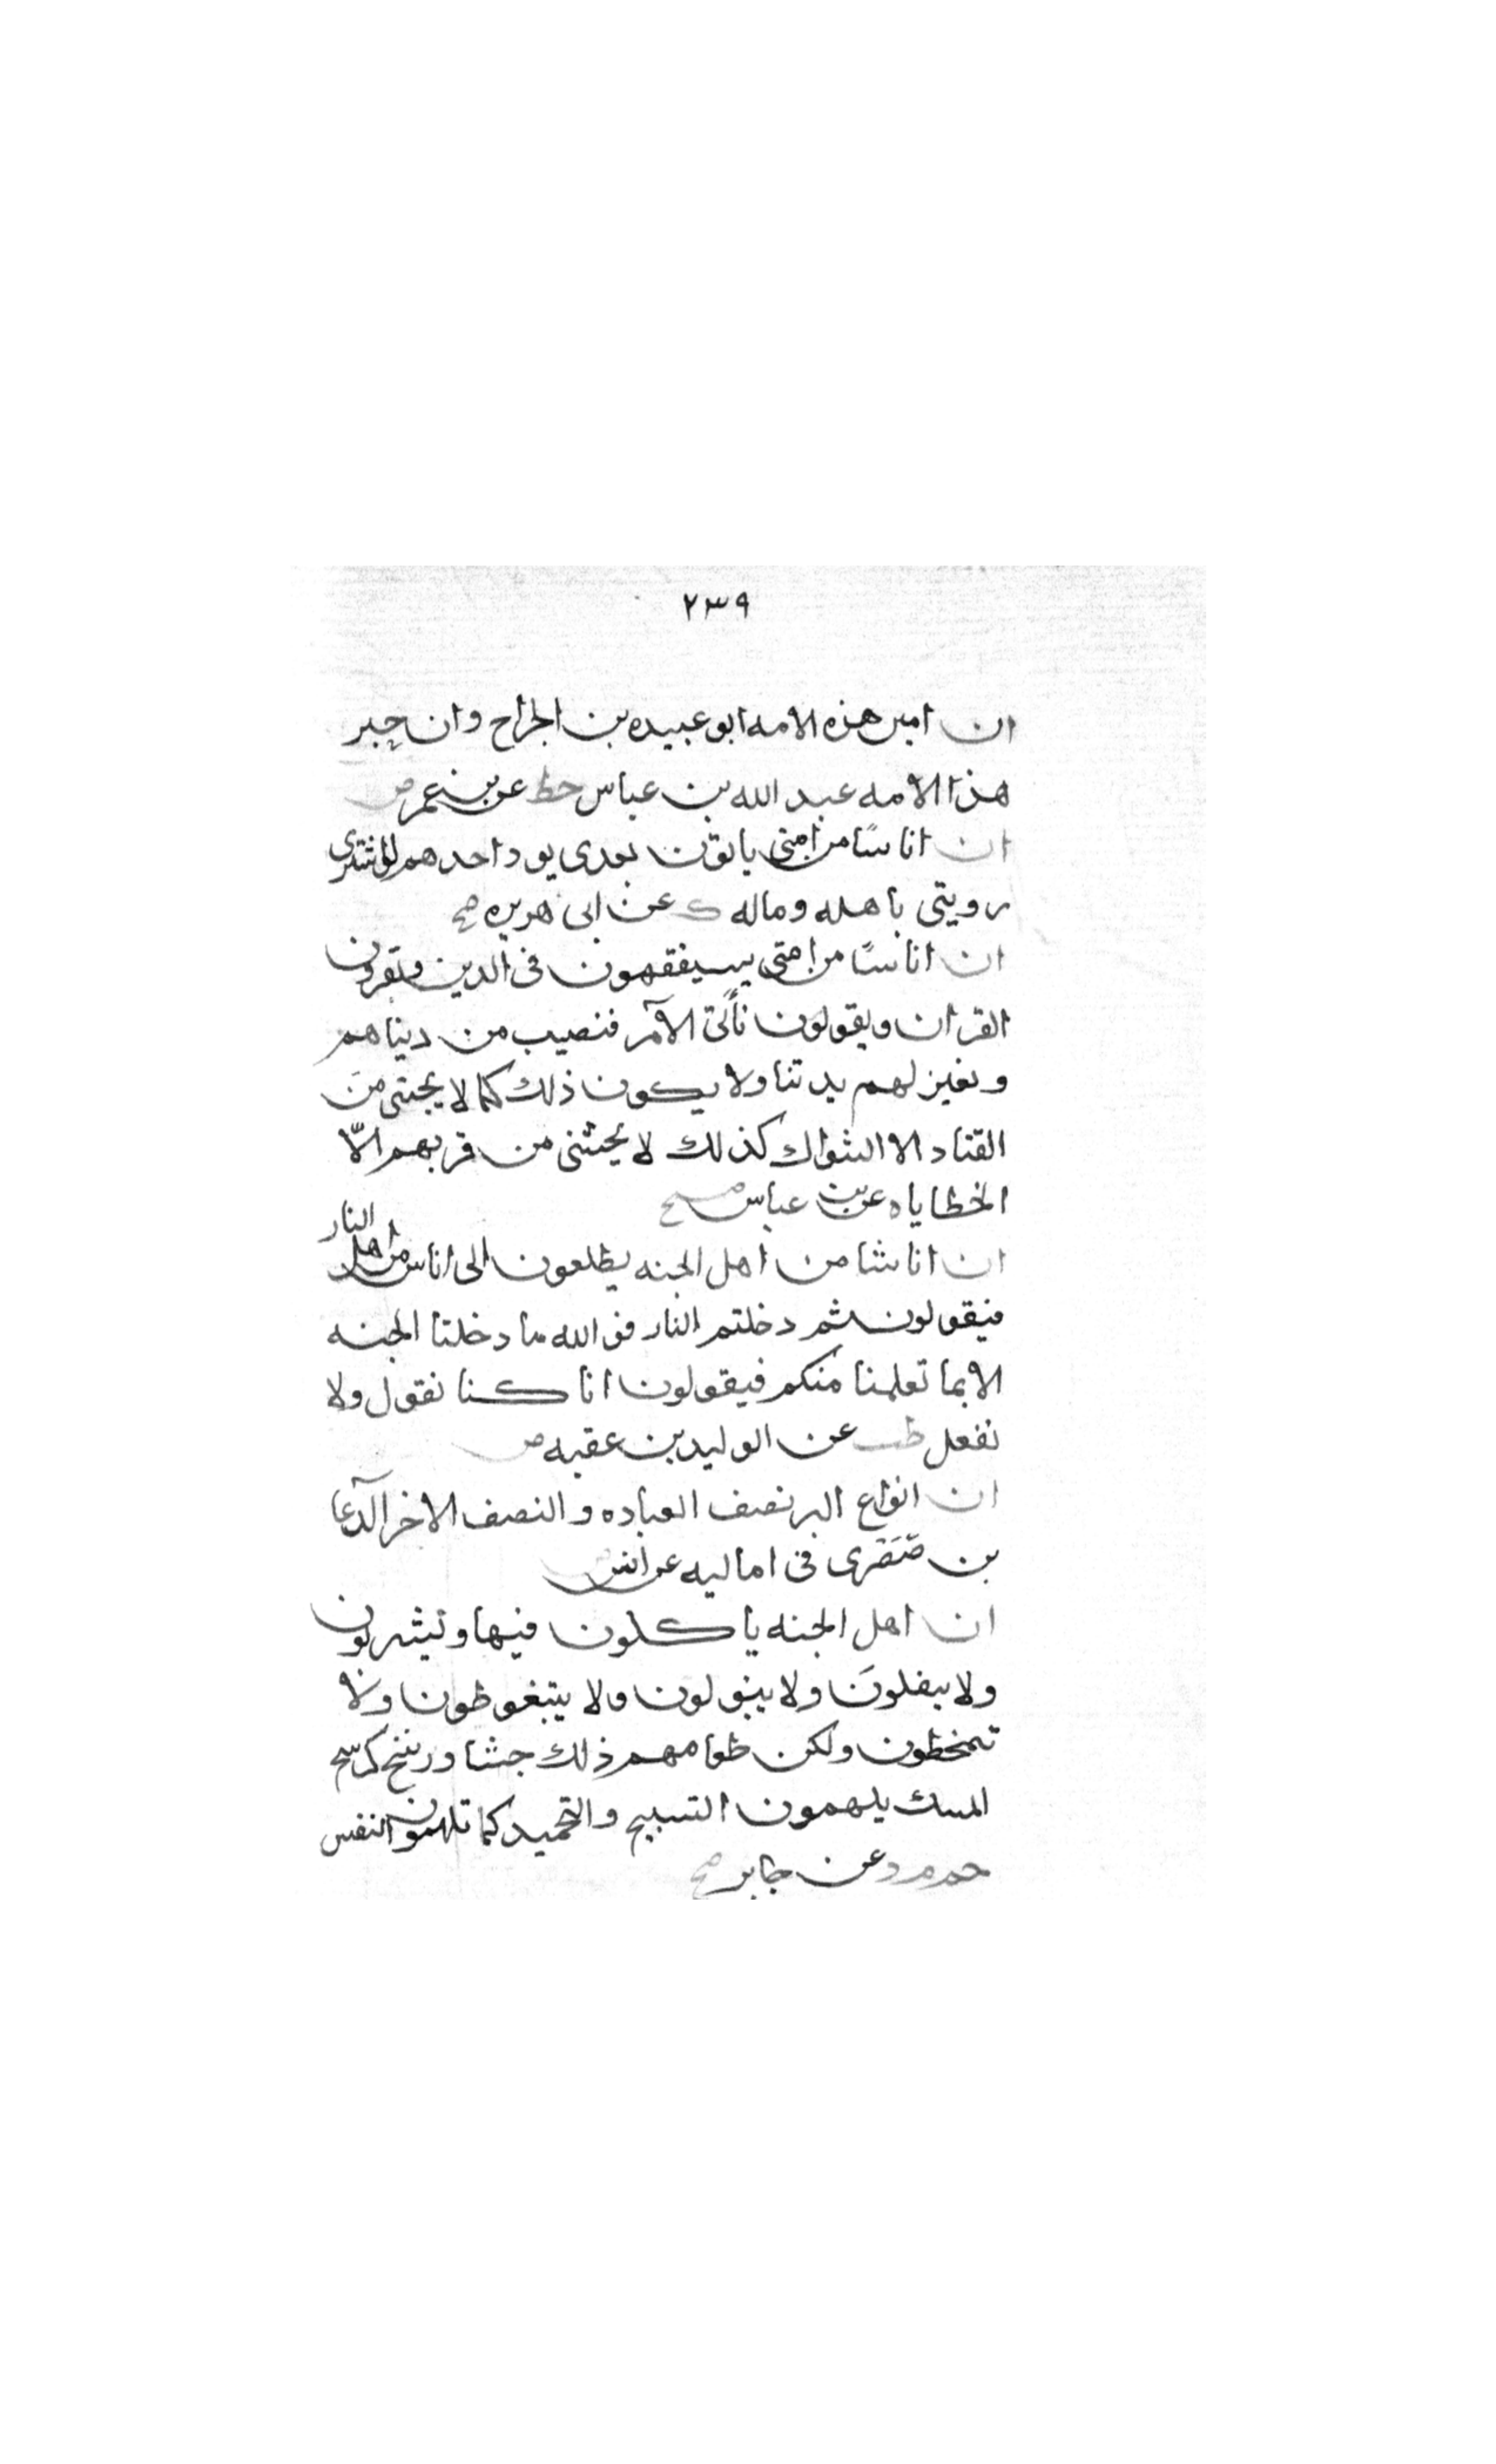 ٢٣٩
ان امين هذه الامه ابو عبيده بن الجراح وان حبر
هذا الامه عبد الله بن عباس خط عن بن عمر ض
ان اناسًا من امتي ياتون بعدي يود احدهم لو اشترى
رويتي باهله وماله ك عن ابي هريره صح
ان اناسًا من امتي يسيفقهون في الدين ويقرون
القران ويقولون نأتي الأمر فنصيب من ديناهم
ونعيز لهم بدتنا ولا يكون ذلك كما لا يجتنى من
القتاد الا الشواك كذلك لا يجتنى من قربهم الّا
الخطايا ه عن بن عباس صح
ان اناشا من اهل الجنه يطلعون الى اناس من اهل النار
فيقولون بثم دخلتم النار فو الله ما دخلنا الجنه
الا بما تعلمنا منكم فيقولون انا كنا نقول ولا
نفعل طب عن الوليد بن عقبه ض
ان انواع البر نصف العباده والنصف الاخر الدعا
بن صَصَرى في اماليه عن انس
ان اهل الجنه ياكلون فيها ويشربون
ولا يتفلون ولا يبولون ولا يتغوطون ولا
تمخطون ولكن طعامهم ذلك جشا ورشح كرشح
المسك يلهمون التسبيح والتحميد كما تلهمون النفس
حم م د عن جابر صح